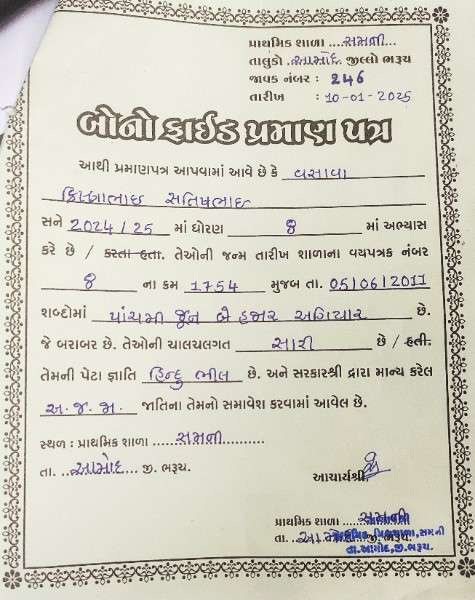 પ્રાથમિક શાળા ...સમની...
તાલુકો .આમોદ જીલ્લો ભરૂચ
જાવક નંબર : 246
તારીખ : 10-01-2025
બોનોફાઈડ પ્રમાણ પત્ર
આથી પ્રમાણપત્ર આપવામાં આવે છે કે વસાવા
સતિષભાઇ
સને 2024/25 માં ધોરણ 8 માં અભ્યાસ
કરે છે / કરતા હતા. તેઓની જન્મ તારીખ શાળાના વયપત્રક નંબર
8 ના ક્રમ 1754 મુજબ તા. 05/06/2011
શબ્દોમાં પાંચમી જૂન બે હજાર અગિયાર છે.
જે બરાબર છે. તેઓની ચાલચલગત સારી છે / હતી.
તેમની પેટા જ્ઞાતિ હિન્દુ ભીલ છે. અને સરકારશ્રી દ્વારા માન્ય કરેલ
અ.જ.જા. જાતિના તેમનો સમાવેશ કરવામાં આવેલ છે.
સ્થળ : પ્રાથમિક શાળા .....સમની..........
તા. ..આમોદ..... જી. ભરૂચ.
આચાર્યશ્રી
પ્રાથમિક શાળા ....સમની
તા. ..આ
મિશ્રશાળા, સમની
તા.આમોદ, જી.ભરૂચ.